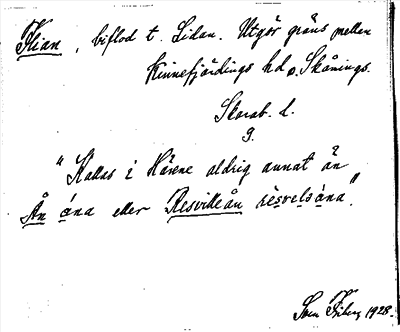 Flian, biflod t. Lidan. Utgör gräns mellan
Kinnefjärdings hd o. Skånings.
Skarab. l.
9.
"Kallas i Härene aldrig annat än
Ån ána eller Resvilleån résvelsána".
Sven 1928.